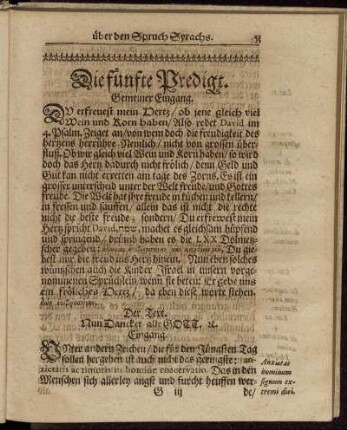 über den Spruch Syrachs.
Die fünfte Predigt.
Gemeiner Eingang.
DU erfreuest mein Hertz / ob jene gleich viel
Wein und Korn haben / Also redet David im
4. Psalm. Zeiget an / von wem doch die freudigkeit des
hertzens herrühre / Nemlich / nicht von grossen über-
fluß. Ob wir gleich viel Wein und Korn haben / so wird
doch das Hertz dadurch nicht frölich / denn Geld und
Gut kan nicht erretten am tage des Zorns. Es ist ein
grosser unterscheid unter der Welt freude / und Gottes
freude. Die Welt hat ihre freude in küchen und kellern /
in fressen und sauffen / allein das ist nicht die rechte
nicht die beste freude, sondern / Du erfreuest mein
Hertz spricht David, machet es gleichsam hüpfend
und springend / drümb haben es die LXX Dolmetz-
scher gegeben: Du gie-
best mir die freud ins Hertz hinein. Nun eben solches
wünschen auch die Kinder Israel in unserm vorge-
nommenen Sprüchlein, wenn sie beten: Er gebe uns
ein fröliches Hertz / da eben diese worte stehen.
Der Text.
Nun Dancket alle GOTT, ꝛc.
Eingang.
UNter andern Zeichen / die für den Jüngsten Tag
sollen hergehen ist auch nicht das geringste:
Das in den
Menschen sich allerley angst und furcht heuffen wer-
G iij
de /
Anxietas
hominum
signum ex-
tremi diei.